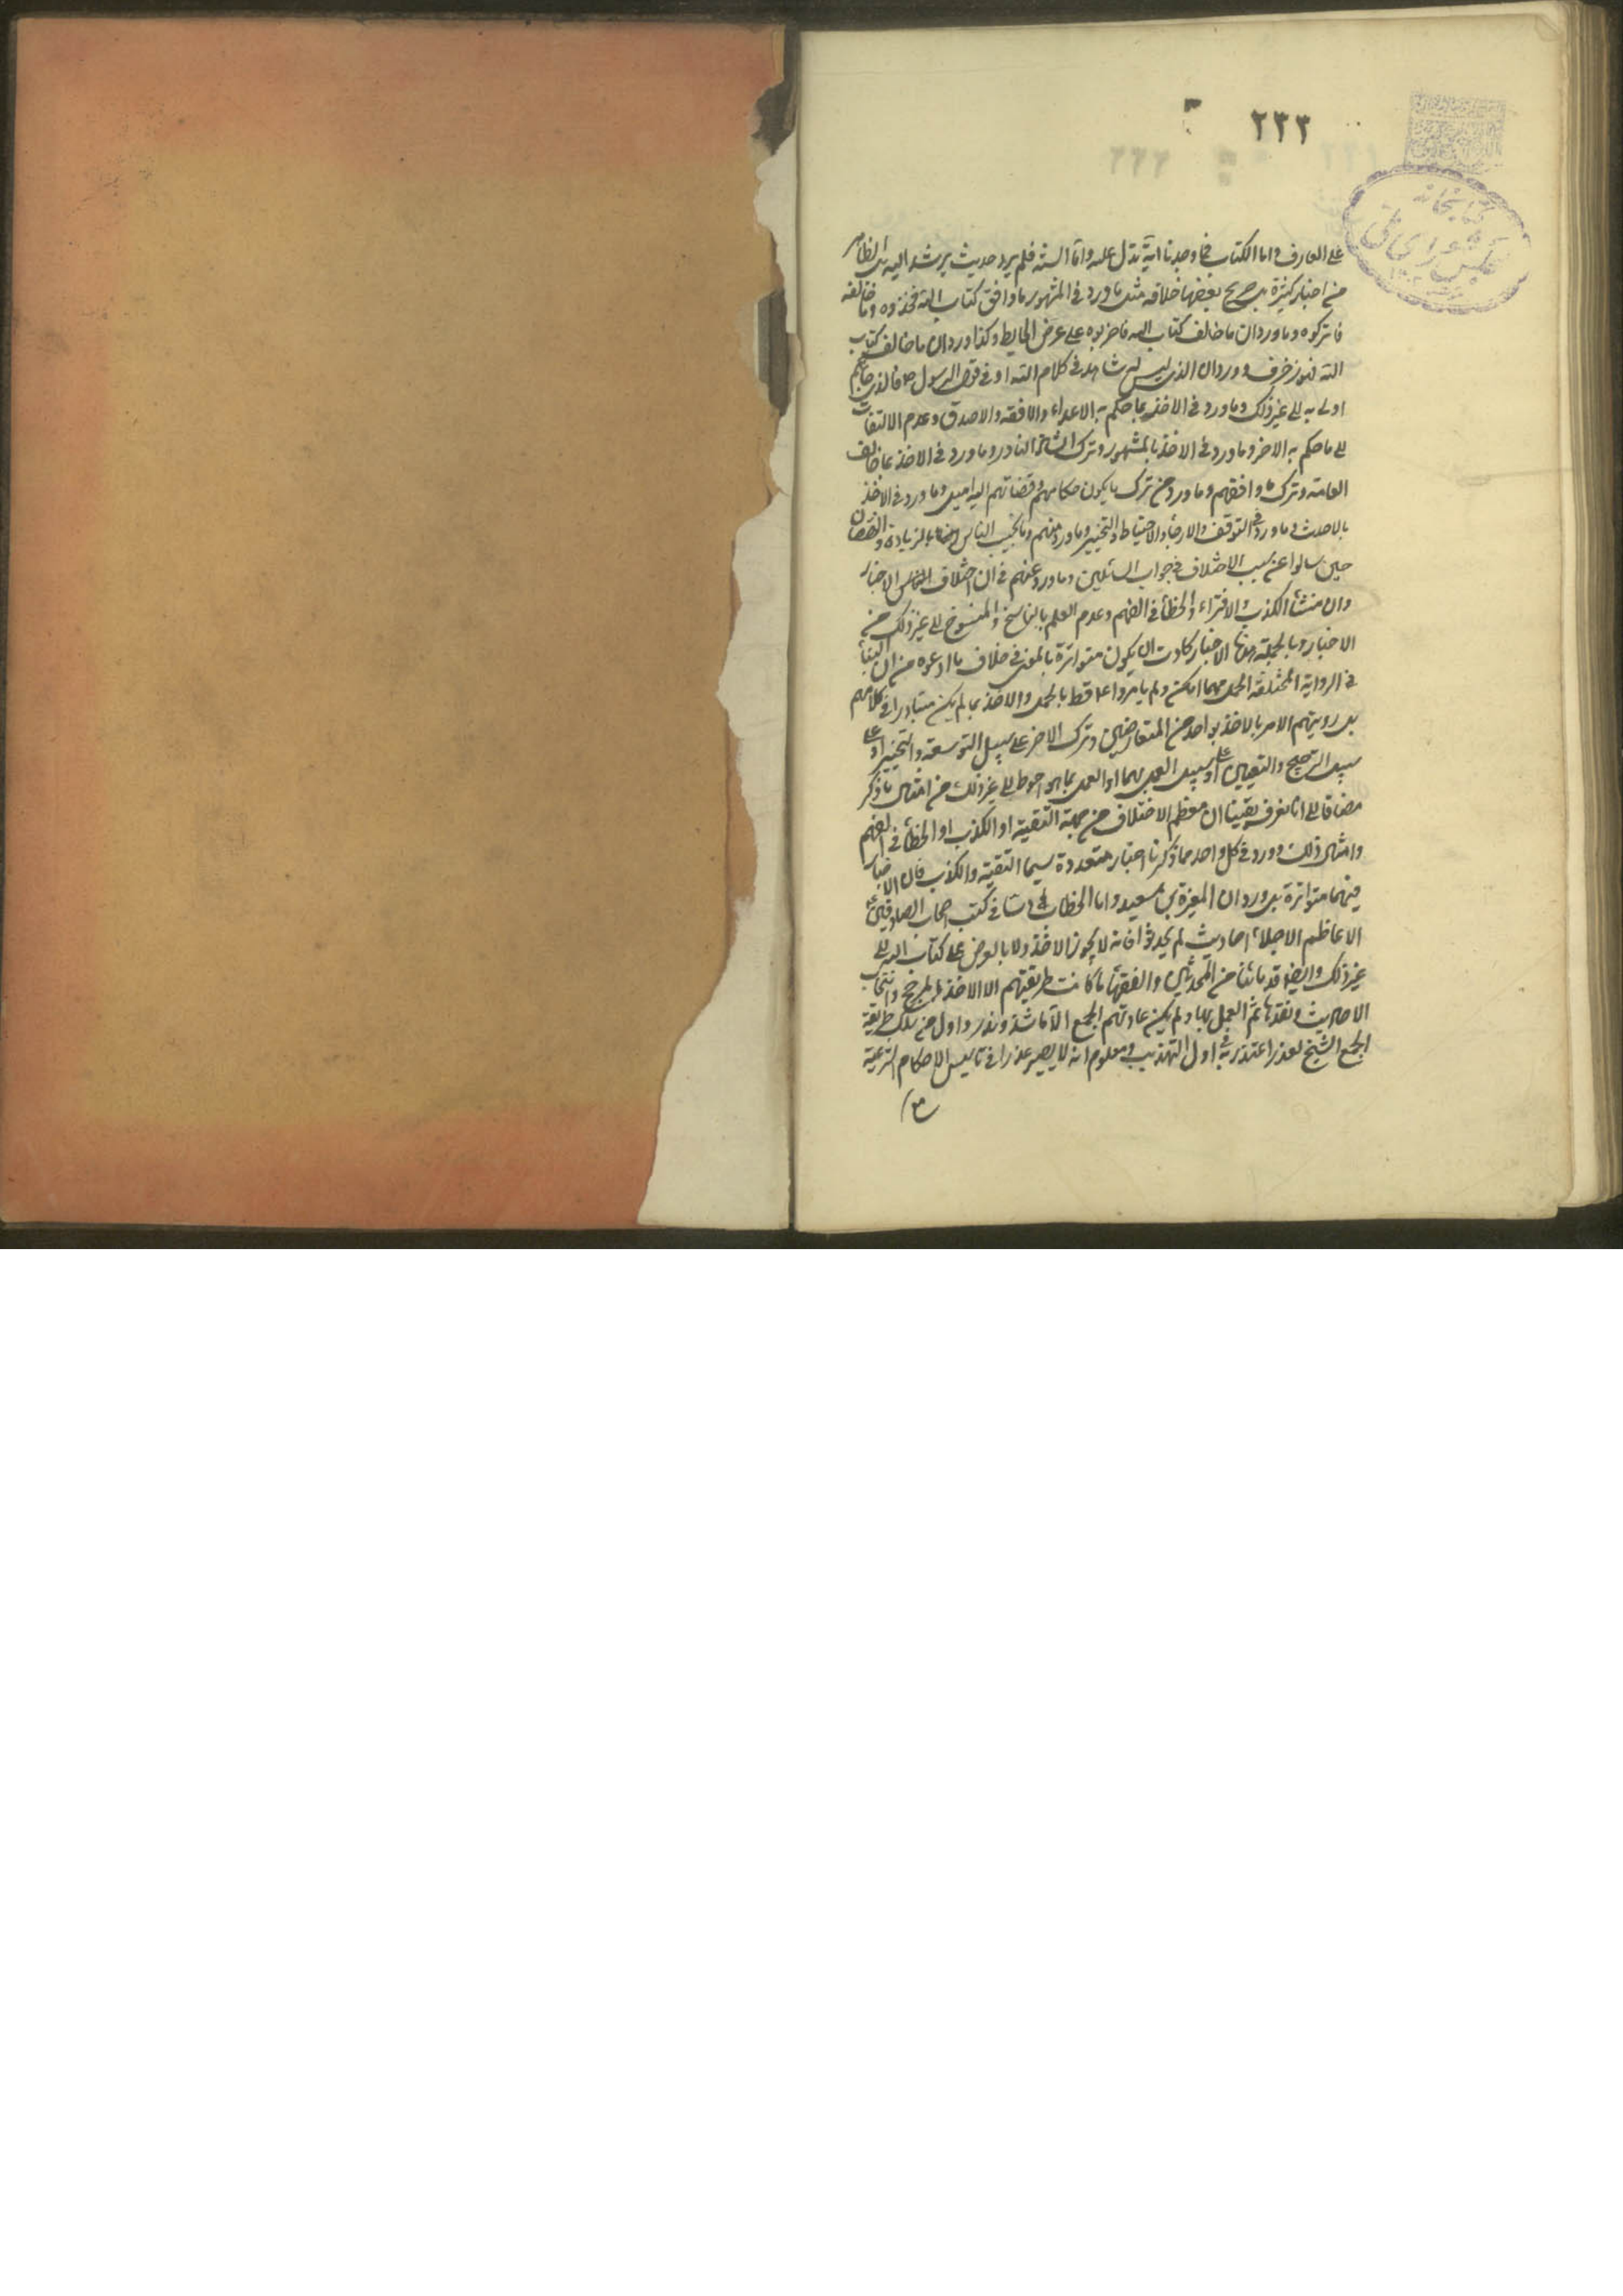 ٢٣٣
كتابخانه
مجلس شورای ملی
على العارف واما الكتاب فما وجدنا اية تدل عليه واما السنة فلم يرد حديث يرشد اليه بل الظاهر
من اخبار كثيرة بل صريح بعضها خلافه مثل ما ورد فى المشهور ما وافق كتاب الله فخذوه وما خالفه
فاتركوه وما ورد ان ما خالف كتاب الله فاضربوه على عرض الحايط وكذا ورد ان ما خالف كتاب
الله فهو زخرف وورد ان الذى ليس له شاهد فى كلام الله او فى قول الرسول ص فالذى جاءكم
اولى به الى غير ذلك وما ورد فى الاخذ بما حكم به الاعدل والافقه والاصدق وعدم الالتفات
الى ما حكم به الاخر وما ورد فى الاخذ بالمشهور وترك الشاذ النادر وما ورد فى الاخذ بما خالف
العامة وترك ما وافقهم وما ورد من ترك ما يكون حكامهم وقضاتهم اليه اميل وما ورد فى الاخذ
بالاحدث وما ورد فى التوقف والارجاء والاحتياط والتخيير وما ورد منهم وما نجيب الناس بالزيادة والنقصان
حين سالوا عن سبب الاختلاف فى جواب السائلين وما ورد عنهم فى ان اختلاف الاخبار
وان منشأ الكذب والافتراء والخطأ فى الفهم وعدم العلم بالناسخ والمنسوخ الى غير ذلك من
الاخبار وبالجملة هذه الاخبار كادت ان يكون متواترة بالمعنى فى خلاف ما ادعوه من ان البناء
فى الرواية المختلفة الجمع مهما امكن ولم يامروا ع قط بالجمع والاخذ بما لم يكن متبادرا فى كلامهم
بل رويتهم الامر بالاخذ بواحد من المتعارضين وترك الاخر على سبيل التوسعة والتخيير او على
سبيل الترجيح والتعيين او على سبيل العمل بهما او العمل بما هو احوط الى غير ذلك من امثال ما ذكر
مضافا الى انا نعرف يقينا ان معظم الاختلاف من جهة التقية او الكذب او الخطأ فى الفهم
وامثال ذلك وورد فى كل واحد مما ذكرنا اخبار متعددة سيما التقية والكذب فان الاخبار
فيهما متواترة بل ورد ان المغيرة بن سعيد وابا الخطاب دسا فى كتب اصحاب الصادقين ع
الاعاظم الاجلاء احاديث لم يحدثوا فانه لا يجوز الاخذ ولا بالعرض على كتاب الله الى
غير ذلك وايضا قدمائنا من المحدثين والفقهاء ما كانت طريقتهم الا الاخذ بالمرجح وانتخاب
الاحاديث ونقدها ثم العمل بها ولم يكن عادتهم الجمع الا ما شذ وندر واول من سلك طريقة
الجمع الشيخ لعذر اعتذر به فى اول التهذيب ومعلوم انه لا يصير عذرا فى تاسيس الاحكام الشرعية